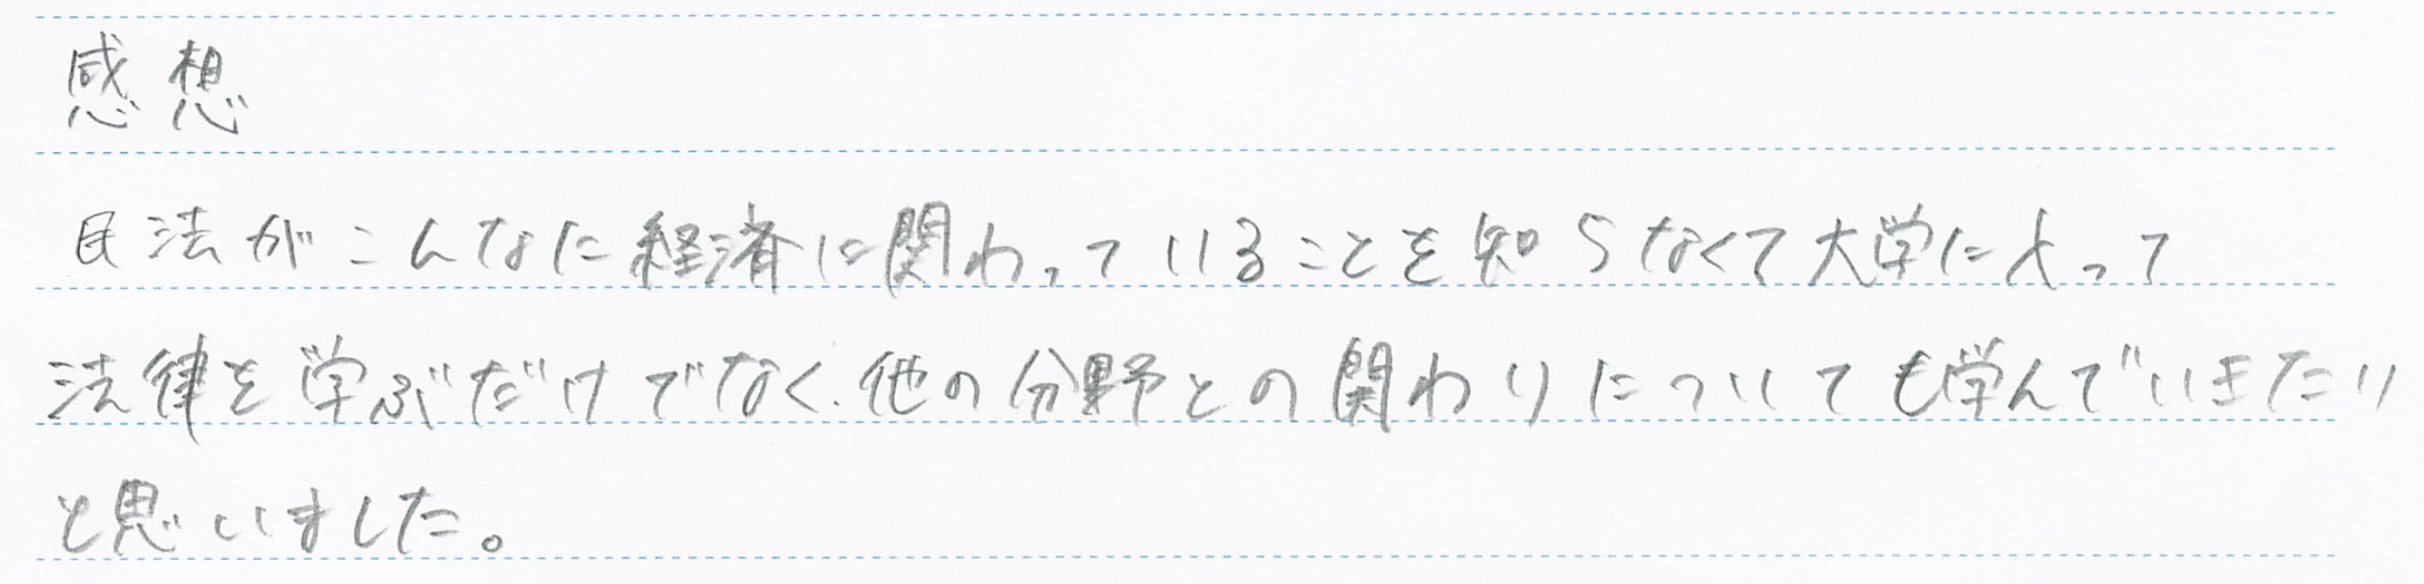 感想
民法がこんなに経済に関わっていることを知らなくて大学に入って
法律を学ぶだけでなく、他の分野との関わりについても学んでいきたい
と思いました。